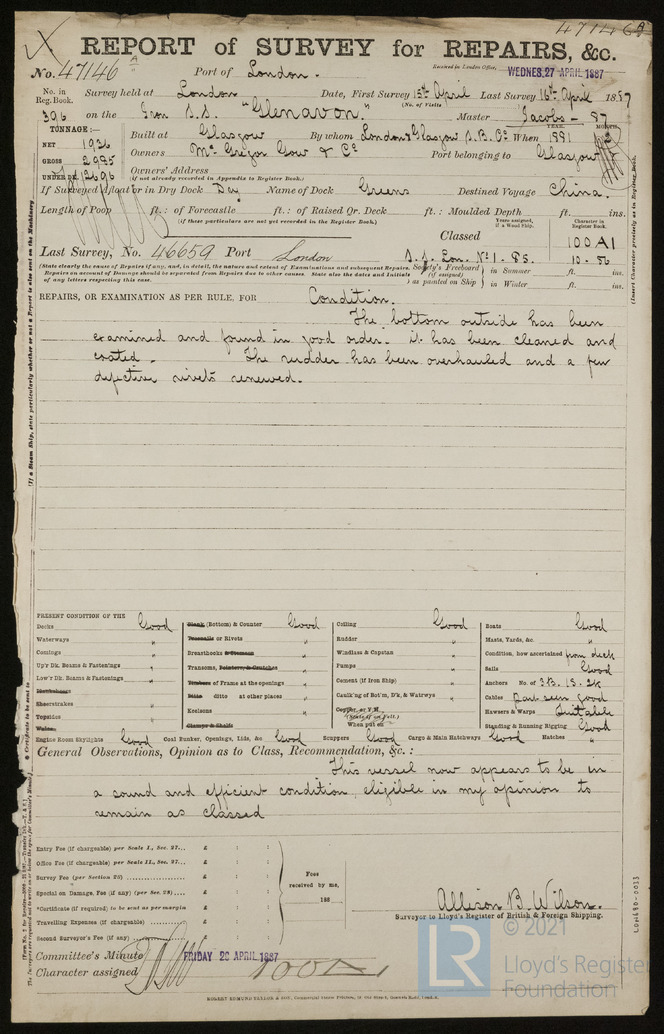 47146 A
REPORT of SURVEY for REPAIRS, &c.
No. 47146 A Port of London. Received in London Office, WEDNES. 27 APRIL 1887
No. in Reg. Book. Survey held at London Date, First Survey 15th April Last Survey 16th April 1887
(No. of Visits)
396 on the Iron S.S. "Glenavon." Master Jacobs - 87
TONNAGE:—
YEAR. MONTH.
NET 1936 Built at Glasgow By whom London & Glasgow S.B. Co. When 1881
GROSS 2985 Owners McGregor Gow & Co Port belonging to Glasgow
UNDER DK 2696 Owners' Address
(if not already recorded in Appendix to Register Book.)
If Surveyed Afloat or in Dry Dock Dry Name of Dock Greens Destined Voyage China.
Length of Poop ft.: of Forecastle ft.: of Raised Qr. Deck ft.: Moulded Depth ft. ins.
(if these particulars are not yet recorded in the Register Book.)
Years assigned, if a Wood Ship. Character in Register Book.
Classed 100A1
Last Survey, No. 46659 Port London S.S. Lon. No 1 - 85. 10 - 86
(State clearly the cause of Repairs if any, and, in detail, the nature and extent of Examinations and subsequent Repairs.
Repairs on account of Damage should be separated from Repairs due to other causes. State also the dates and Initials
of any letters respecting this case.
Society's Freeboard (if assigned) as painted on Ship
in Summer ft. ins.
in Winter ft. ins.
REPAIRS, OR EXAMINATION AS PER RULE, FOR Condition.
The bottom outside has been
examined and found in good order. it has been cleaned and
coated. The rudder has been overhauled and a few
defective rivets renewed.
PRESENT CONDITION OF THE
Decks Good
Waterways "
Comings "
Up'r Dk. Beams & Fastenings "
Low'r Dk. Beams & Fastenings "
Sheerstrakes "
Topsides "
Wales
Engine Room Skylights Good
Plank (Bottom) & Counter Good
Treenails or Rivets "
Breasthooks & Stemson "
Transoms, Pointers, & Crutches "
Timbers of Frame at the openings "
Ditto ditto at other places "
Keelsons "
Clamps & Shelfs
Coal Bunker, Openings, Lids, &c. Good
Ceiling Good
Rudder "
Windlass & Capstan "
Pumps "
Cement (if Iron Ship) "
Caulk'ng of Bot'm, D'k, & Waterwys "
Copper, or Y.M.
(State if on Felt.)
When put on
Scuppers Good Cargo & Main Hatchways Good
Boats Good
Masts, Yards, &c. "
Condition, how ascertained from deck
Sails Good
Anchors No. of 3B. 1S. 2K
Cables part seen good
Hawsers & Warps Suitable
Standing & Running Rigging Good
Hatches "
General Observations, Opinion as to Class, Recommendation, &c.:
This vessel now appears to be in
a sound and efficient condition, eligible in my opinion to
remain as classed
Entry Fee (if chargeable) per Scale I., Sec. 27... £ : :
Office Fee (if chargeable) per Scale II., Sec. 27... £ : :
Survey Fee (per Section 28) £ : :
Special or Damage, Fee (if any) (per Sec. 28) £ : :
*Certificate (if required) to be sent as per margin £ : :
Travelling Expenses (if chargeable) £ : :
Second Surveyor's Fee (if any) £ : :
Fees received by me,
188
Allison B. Wilson.
Surveyor to Lloyd's Register of British & Foreign Shipping.
Committee's Minute FRIDAY 29 APRIL 1887
Character assigned 100A1
LON680-0033
© 2021
LR
Lloyd's Register
Foundation